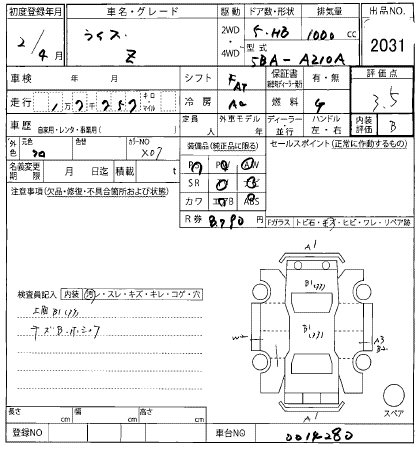 初度登録年月 車名・グレード 駆動 ドア数・形状 排気量 出品NO.
2/4月 ライズ Z 2WD 4WD 5・HB 1000 cc 2031
型式 5BA-A210A
車検 年 月 シフト FAT 保証書 有・無 評価点
走行 1万7千257 キロ・マイル 冷房 AC 燃料 G 3.5
車歴 自家用・レンタ・事業用( ) 定員 人 外車モデル 年 ディーラー・並行 ハンドル 左・右 内装評価 B
外色 元色 色替 カラーNO X07 装備品(純正品に限る) セールスポイント(正常に作動するもの)
名義変更期限 月 日迄 積載 t
SR
注意事項(欠品・修復・不具合箇所および状態) カワ ABS
R券 8,790 Fガラス トビ石・キズ・ヒビ・ワレ・リペア跡
A1
検査員記入 内装 ・スレ・キズ・キレ・コゲ・穴
W2 A3
B2
A1 スペア
長さ cm 幅 cm 高さ cm
登録NO 車台NO 0014280